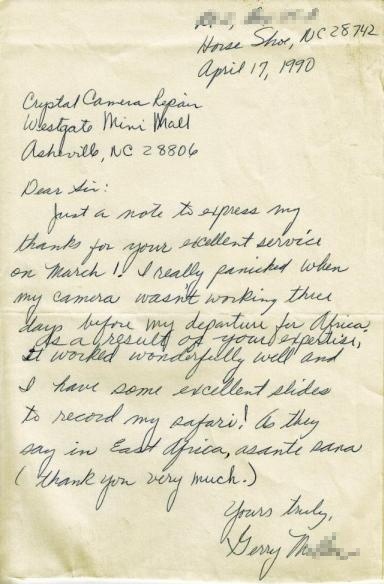 Horse Shoe, NC 28742
April 17, 1990
Crystal Camera Repair
Westgate Mini Mall
Asheville, NC 28806
Dear Sir:
Just a note to express my
thanks for your excellent service
on March 1. I really panicked when
my camera wasn't working three
days before my departure for Africa.
as a result of your expertise,
it worked wonderfully well and
I have some excellent slides
to record my safari! As they
say in East Africa, asante sana
(thank you very much.)
Yours truly,
Gerry